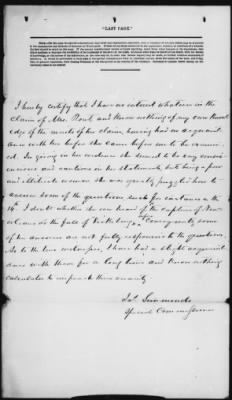 "LAST PAGE."
I hereby certify that I have no interest whatever in the
claim of Mrs. and know nothing of my own knowl
edge of the merits of his claim, having had no acquaint
ance with her before she came before me to be examin
ed. In giving in her evidence she seemed to be very consci
encious and cautious in her statements, but being a poor
and illiterate woman she was greatly puzzled how to
answer some of the questions such for instance as the
14th I doubt whether she ever heard of the capture of New
Orleans or the fall of Vicksburg, & consequently some
of her answers are not fully responsive to the questions.
As to the two witnesses, I have had a slight acquaint
ance with them for a long time and know nothing
calculated to impeach their veracity
Jas. Simmonds
Special Commissioner